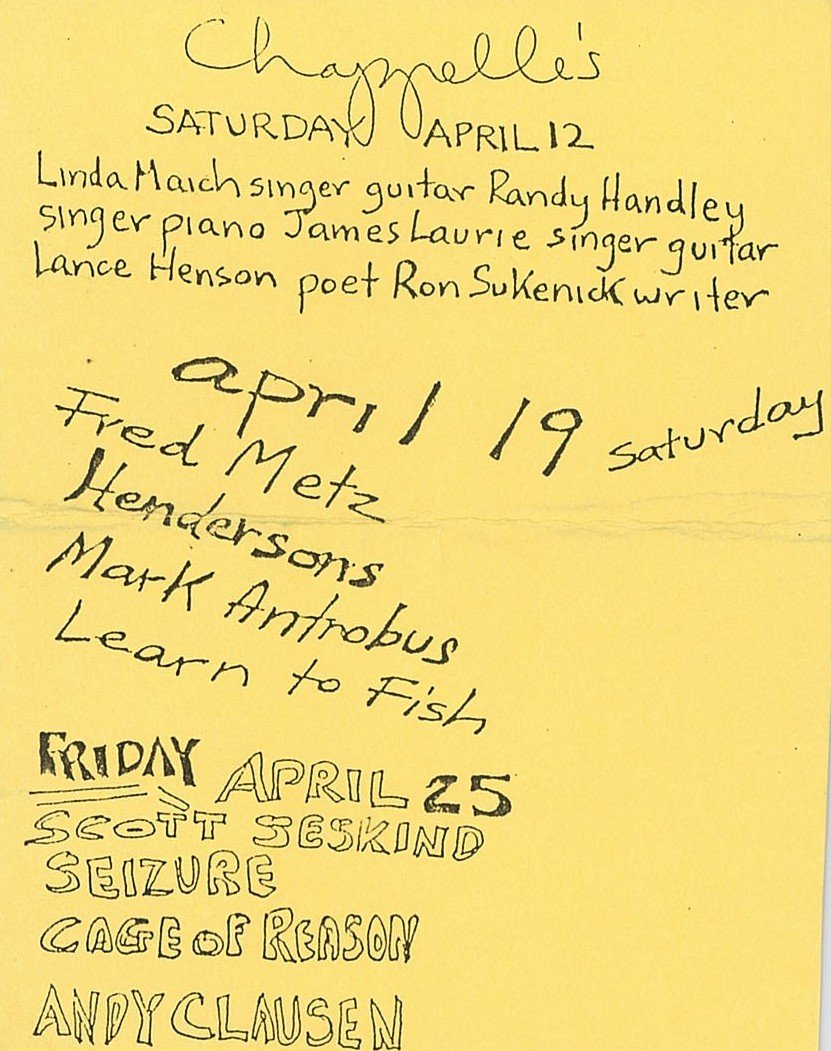 Chappelle's
SATURDAY APRIL 12
Linda Maich singer guitar Randy Handley
singer piano James Laurie singer guitar
Lance Henson poet Ron Sukenick writer
april 19 saturday
Fred Metz
Hendersons
Mark Antrobus
Learn to Fish
FRIDAY APRIL 25
SCOTT SESKIND
SEIZURE
CAGE OF REASON
ANDY CLAUSEN